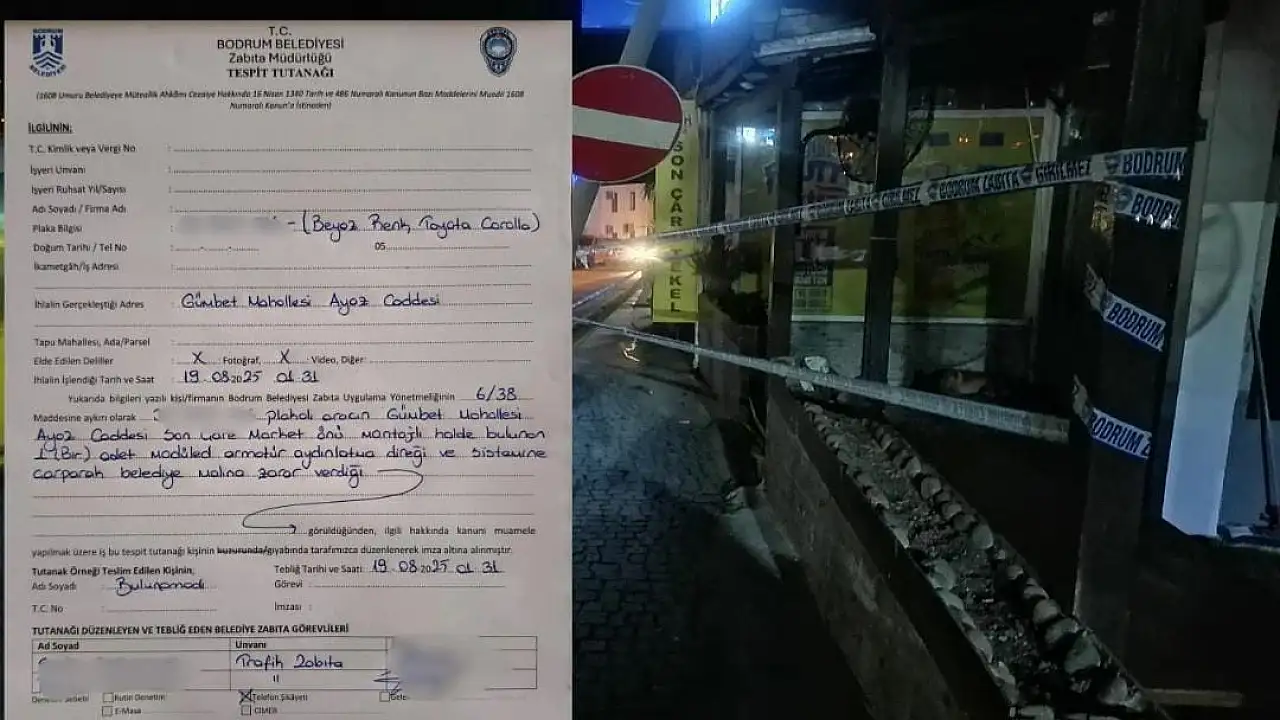 BODRUM
BELEDİYESİ
T.C.
BODRUM BELEDİYESİ
Zabıta Müdürlüğü
TESPİT TUTANAĞI
(1608 Umuru Belediyeye Müteallik Ahkâmı Cezaiye Hakkında 16 Nisan 1340 Tarih ve 486 Numaralı Kanunun Bazı Maddelerini Muadil 1608
Numaralı Kanun'a İstinaden)
İLGİLİNİN;
T.C. Kimlik veya Vergi No :
İşyeri Unvanı :
İşyeri Ruhsat Yıl/Sayısı :
Adı Soyadı / Firma Adı :
Plaka Bilgisi : - (Beyaz Renk Toyota Corolla)
Doğum Tarihi / Tel No : 05
İkametgâh/İş Adresi :
İhlalin Gerçekleştiği Adres : Gümbet Mahallesi Ayaz Caddesi
Tapu Mahallesi, Ada/Parsel :
Elde Edilen Deliller : X Fotoğraf, X Video, Diğer:
İhlalin İşlendiği Tarih ve Saat : 19.08.2025 01 31
Yukarıda bilgileri yazılı kişi/firmanın Bodrum Belediyesi Zabıta Uygulama Yönetmeliğinin 6/38
Maddesine aykırı olarak plakalı aracın Gümbet Mahallesi
Ayaz Caddesi Son Çare Market önü montajlı halde bulunan
1 (Bir) adet modüled armatür aydınlatma direği ve sistemine
çarparak belediye malına zarar verdiği
görüldüğünden, ilgili hakkında kanuni muamele
yapılmak üzere iş bu tespit tutanağı kişinin huzurunda/gıyabında tarafımızca düzenlenerek imza altına alınmıştır.
Tutanak Örneği Teslim Edilen Kişinin; Tebliğ Tarihi ve Saati: 19.08.2025 01 31
Adı Soyadı : Bulunamadı Görevi :
T.C. No : İmzası :
TUTANAĞI DÜZENLEYEN VE TEBLİĞ EDEN BELEDİYE ZABITA GÖREVLİLERİ
Ad Soyad Unvanı
Trafik Zabıta
"
Rutin Denetim X Telefon Şikayeti
E-Masa CIMER
SON ÇARE TEKEL
BODRUM ZABITA GİRİLMEZ BODRUM
BODRU
BODRUM
BODRUM Z